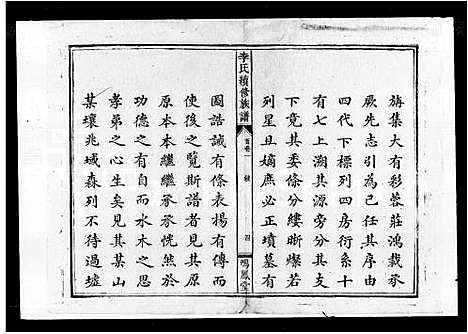 旆集大有彩蓉莊鴻裁承
厥先志引為已任其序由
四代下標列四房衍系十
有七上溯其源旁分其支
下竟其委條分縷晰燦若
列星且嫡庶必正墳墓有
李氏續修族譜
首卷一
四
鳴鳳堂
圖誥誡有條表楊有傳而
使後之覽斯譜者見其原
原本本繼繼承承恍然於
功德之有自而水木之思
孝弟之心生矣見其某山
某壤兆域森列不待過墟